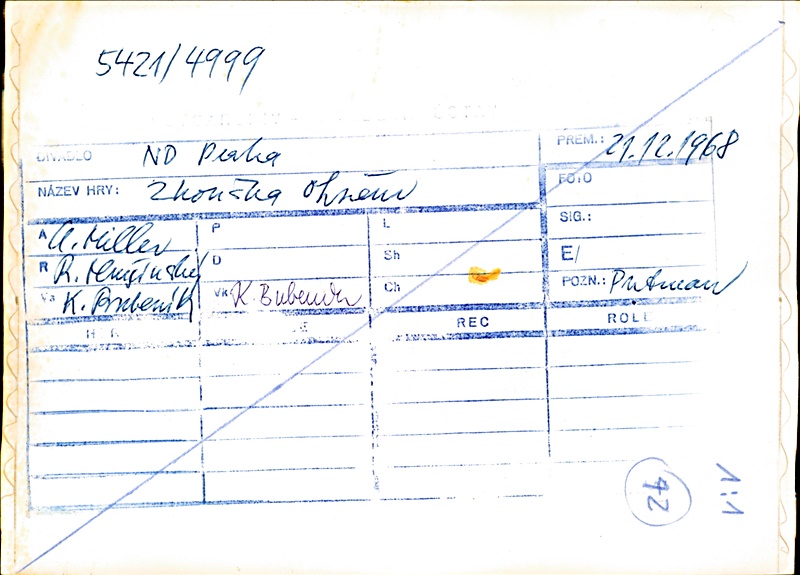 5421/4999
DIVADLO ND Praha
PREM.: 21.12.1968
NÁZEV HRY: Zkouška Ohněm
FOTO
SIG.:
E/
POZN.: Putman
A A. Miller
R R.
Va K. Bubeník
P
D
Vk K. Bubeník
L
Sh
Ch
REC
ROLE
42
1:1